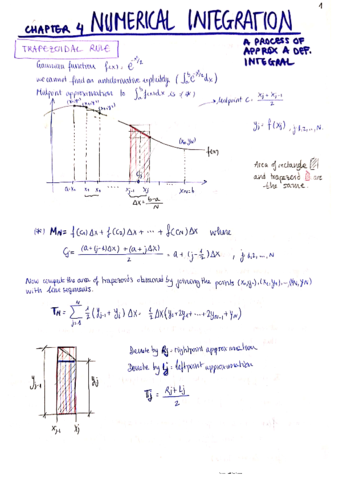 1
CHAPTER 4 NUMERICAL INTEGRATION
TRAPEZOIDAL RULE
A PROCESS OF
APPROX A DEF.
INTEGRAL
Gaussian function f(x) = e^{-x²/2}
we cannot find an antiderivative explicitly (∫_a^b e^{-x²/2} dx)
Midpoint approximation to ∫_a^b f(x)dx is (*)
Midpoint C: (x_j + x_{j-1})/2
y_j = f(x_j), j=1,2,...,N.
f(x)
c_j
x_{j-1} x_j
Δx = (b-a)/N
Area of rectangle
and trapezoid are
the same.
(*) M_N = f(c_1)Δx + f(c_2)Δx + ... + f(c_N)Δx where
c_j = ((a+(j-1)Δx) + (a+jΔx))/2 = a + (j-1/2)Δx , j=1,2,...,N
Now compute the area of trapezoids obtained by joining the points (x_0,y_0),(x_1,y_1),...,(x_N,y_N)
with line segments.
T_N = Σ_{j=1}^{N} 1/2 (y_{j-1} + y_j) Δx =
y_{j-1}
y_j
x_{j-1} x_j
Denote by R_j = rightpoint approximation
Denote by L_j = leftpoint approximation
T_j = (R_j + L_j)/2